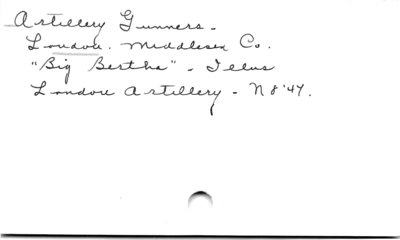 Artillery Gunners -
London. Middlesex Co.
"Big Bertha" - Illus
London Artillery - N 8 '47.